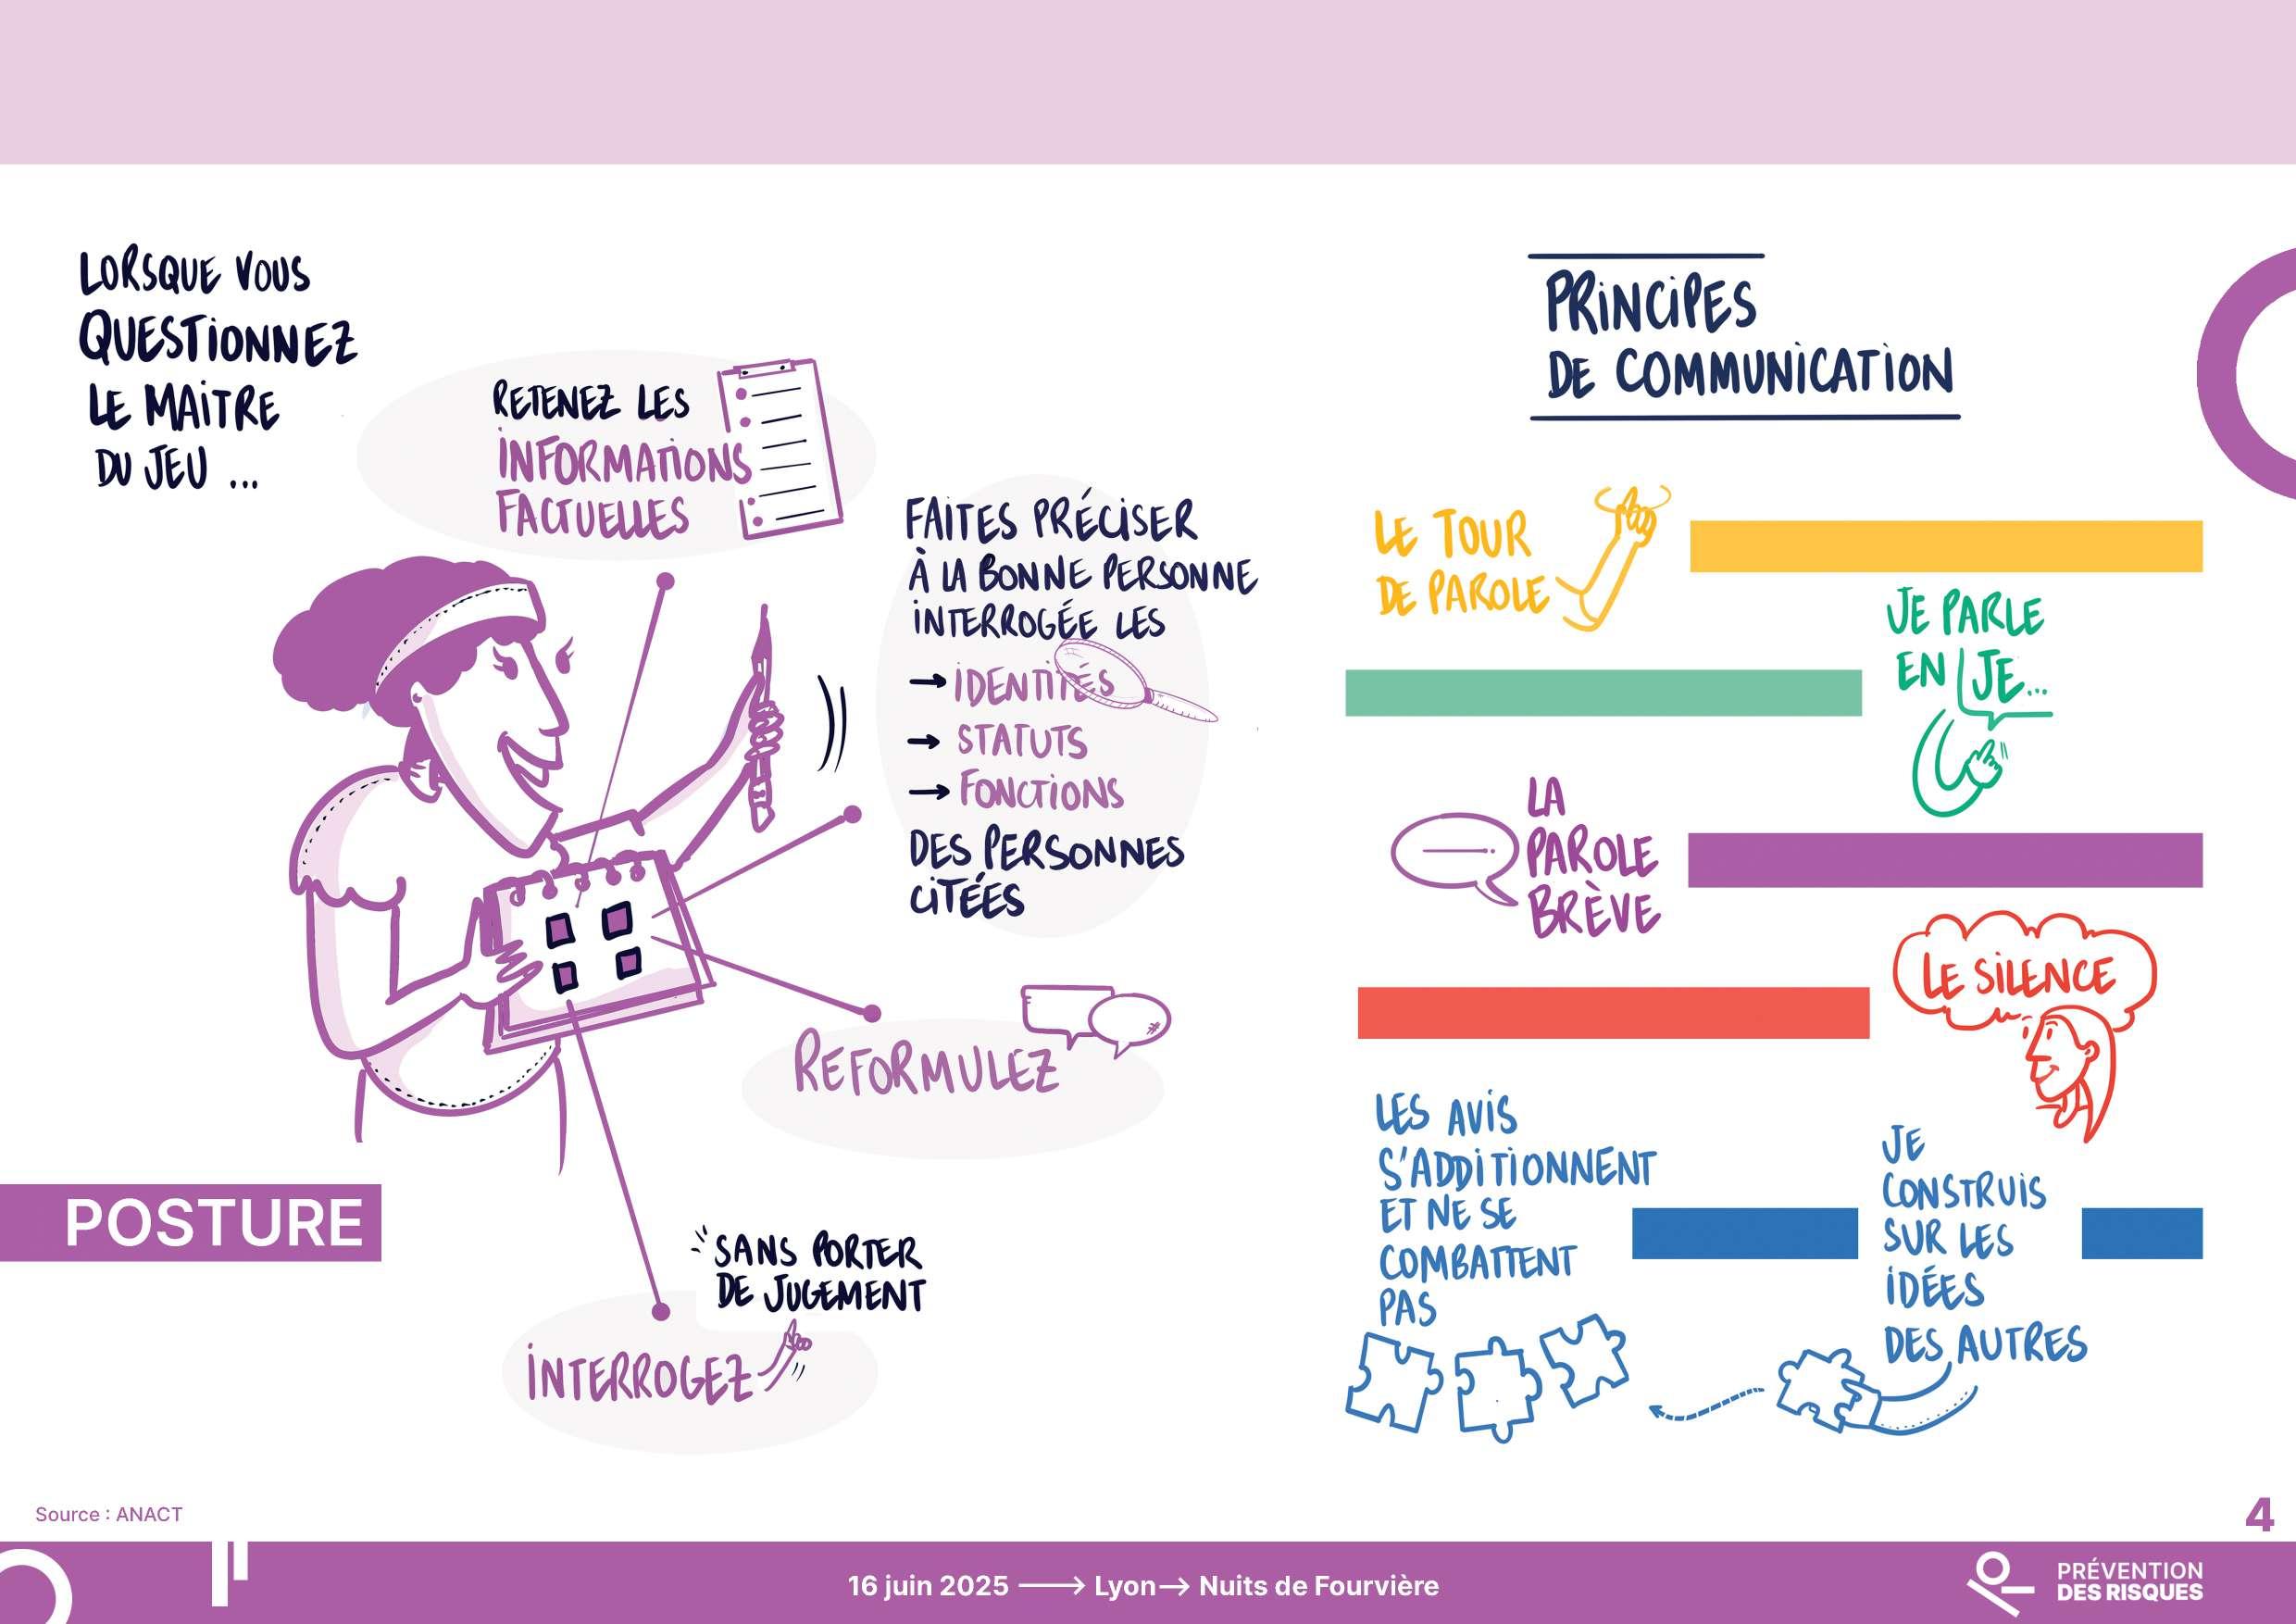 LORSQUE VOUS
QUESTIONNEZ
LE MAITRE
DU JEU ...
RETENEZ LES
INFORMATIONS
FACTUELLES
FAITES PRÉCISER
À LA BONNE PERSONNE
INTERROGÉE LES
→ IDENTITÉS
→ STATUTS
→ FONCTIONS
DES PERSONNES
CITÉES
REFORMULEZ
SANS PORTER
DE JUGEMENT
INTERROGEZ
POSTURE
PRINCIPES
DE COMMUNICATION
LE TOUR
DE PAROLE
JE PARLE
EN JE...
LA
PAROLE
BRÈVE
LE SILENCE
LES AVIS
S'ADDITIONNENT
ET NE SE
COMBATTENT
PAS
JE
CONSTRUIS
SUR LES
IDÉES
DES AUTRES
Source : ANACT
4
16 juin 2025 → Lyon → Nuits de Fourvière
PRÉVENTION
DES RISQUES